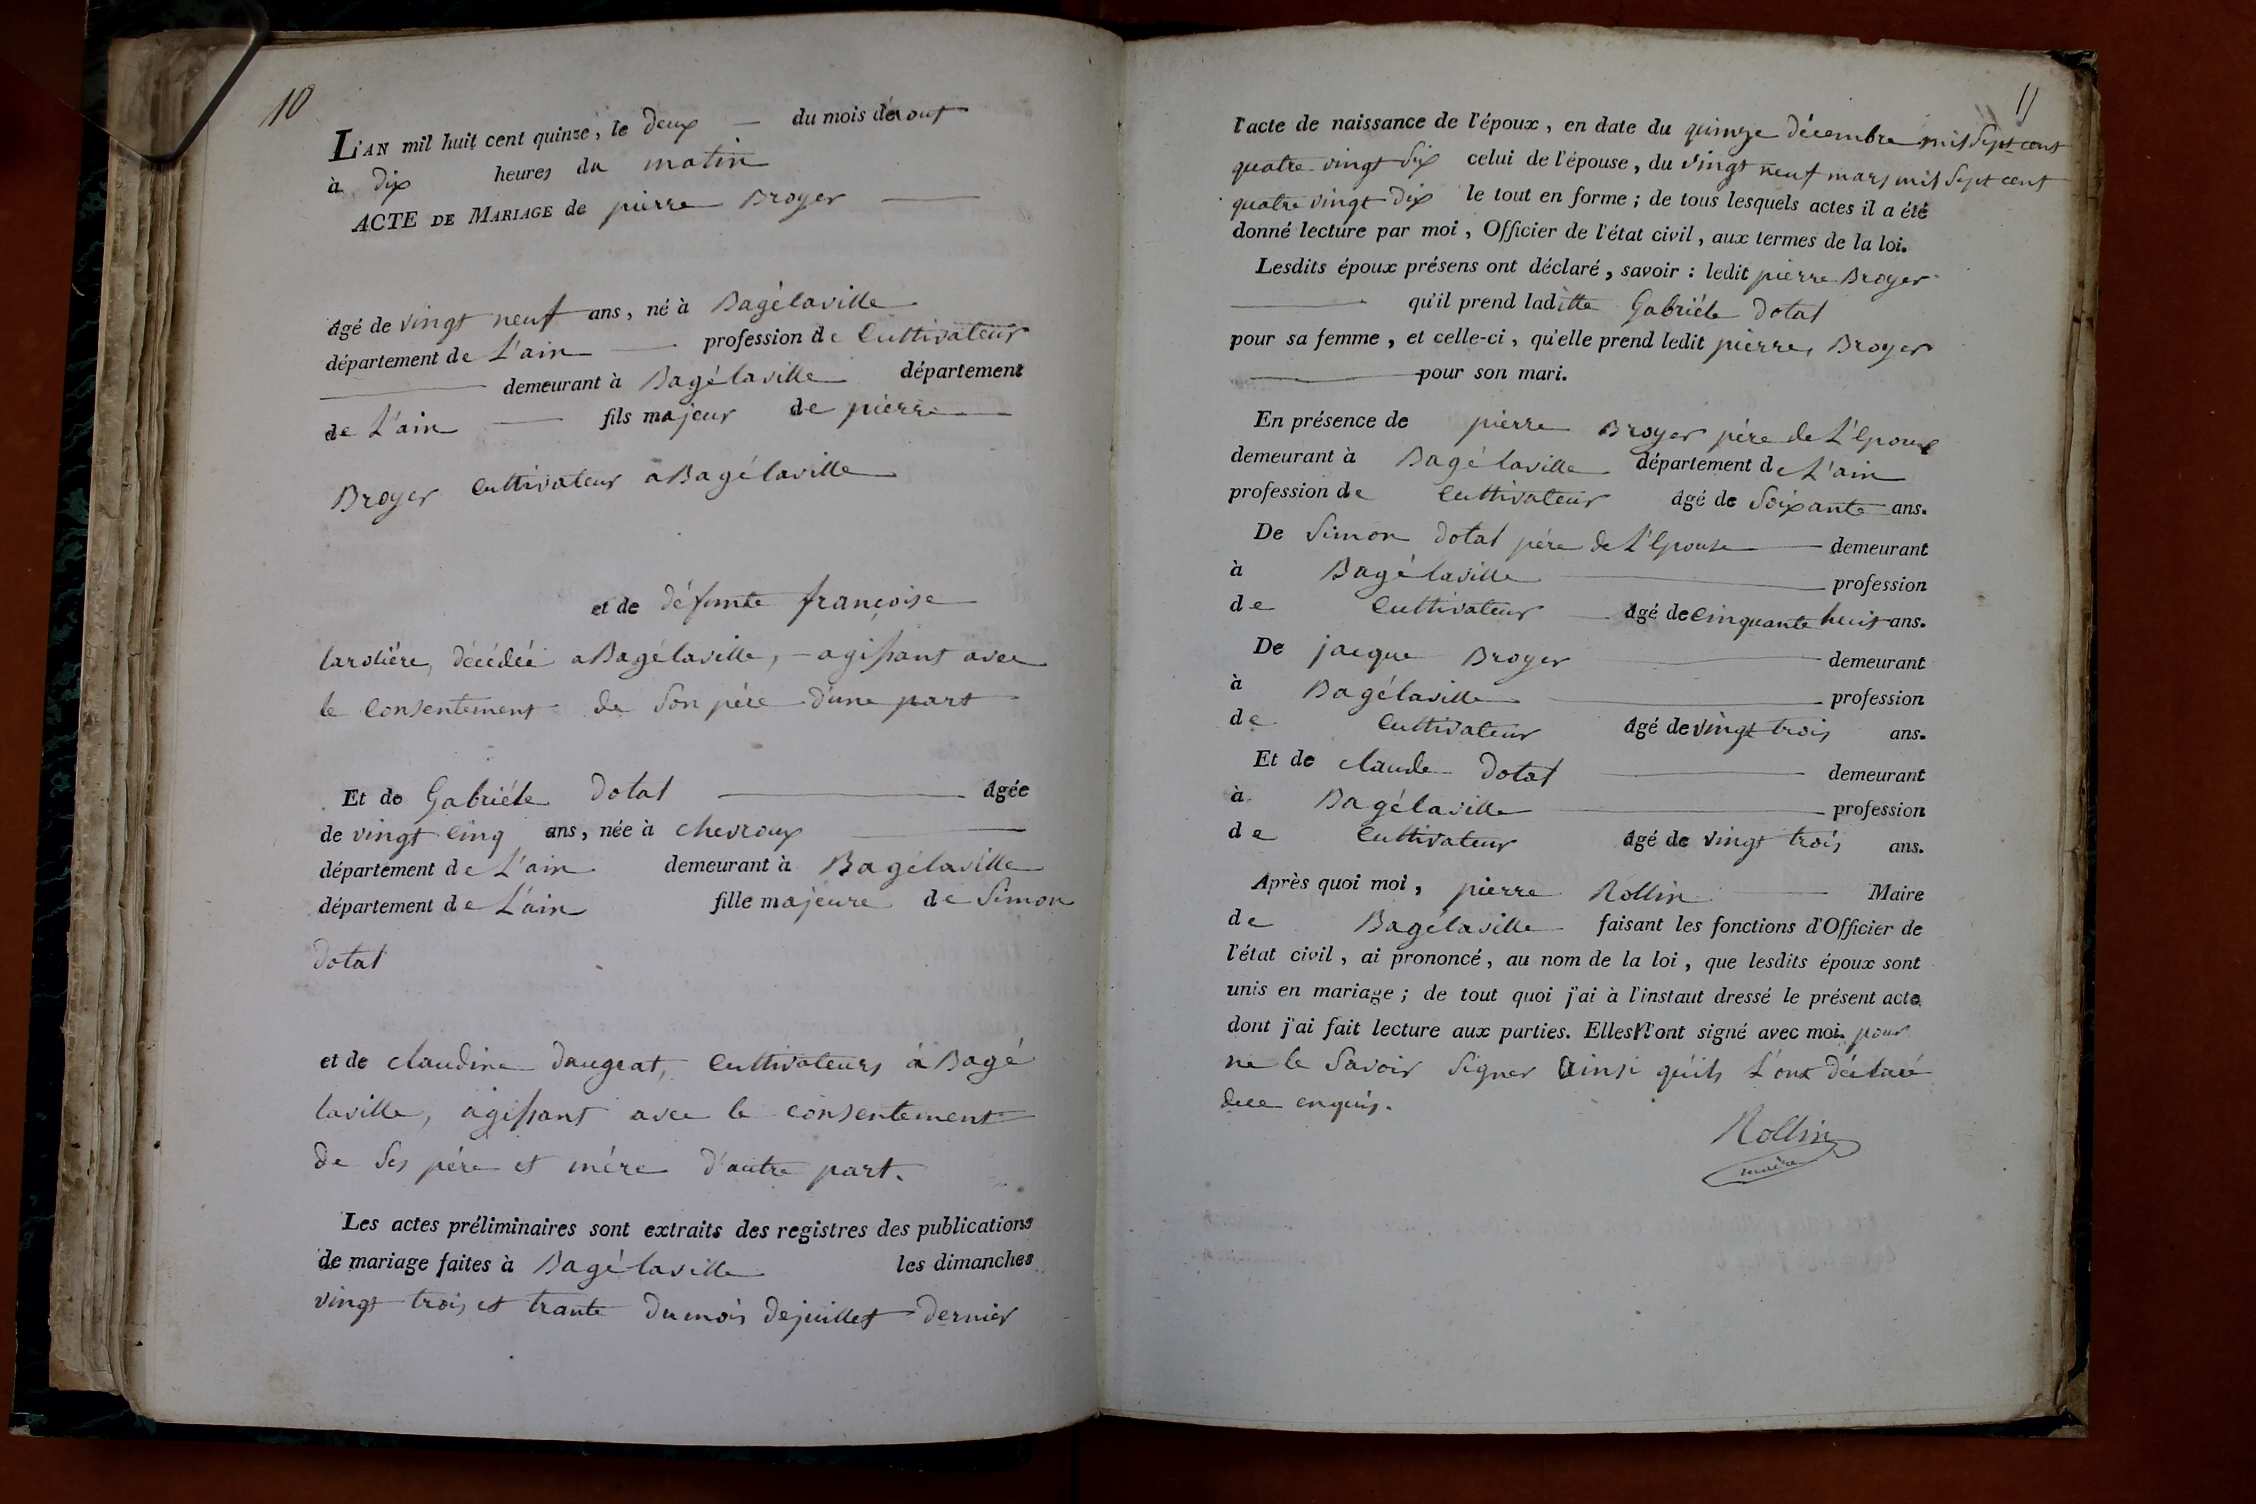 10
L'AN mil huit cent quinze, le deux — du mois d'aout
à dix heures du matin
ACTE DE MARIAGE de pierre Broyer
âgé de vingt neuf ans, né à Bagélaville
département de L'ain profession de Cultivateur
demeurant à Bagélaville département
de L'ain fils majeur de pierre
Broyer Cultivateur a Bagélaville
et de défunte françoise
laroliére, décédéé a Bagélaville, — agissant avec
le Consentement de Son pére d'une part
Et de Gabriéle dotal âgée
de vingt Cinq ans, née à chevroux
département de L'ain demeurant à Bagélaville
département de L'ain fille majeure de Simon
dotal
et de claudine daugeat, Cultivateurs à Bagé
laville, agissant avec le consentement
de Ses pére et mére d'autre part.
Les actes préliminaires sont extraits des registres des publications
de mariage faites à Bagélaville les dimanches
vingt trois et trante du mois de juillet dernier
11
l'acte de naissance de l'époux, en date du quinze décembre mil Sept cent
quatre vingt Six celui de l'épouse, du vingt neuf mars mil Sept cent
quatre vingt dix le tout en forme ; de tous lesquels actes il a été
donné lecture par moi, Officier de l'état civil, aux termes de la loi.
Lesdits époux présens ont déclaré, savoir : ledit pierre Broyer
qu'il prend laditte Gabriéle dotal
pour sa femme, et celle-ci, qu'elle prend ledit pierre Broyer
pour son mari.
En présence de pierre Broyer pére de L'Epoux
demeurant à Bagélaville département de L'ain
profession de Cultivateur âgé de Soixante ans.
De Simon dotal pére de L'Epouse demeurant
à Bagélaville profession
de Cultivateur âgé de Cinquante huit ans.
De jacque Broyer demeurant
à Bagélaville profession
de Cultivateur âgé de vingt trois ans.
Et de claude dotal demeurant
à Bagélaville profession
de Cultivateur âgé de vingt trois ans.
Après quoi moi, pierre Rollin Maire
de Bagélaville faisant les fonctions d'Officier de
l'état civil, ai prononcé, au nom de la loi, que lesdits époux sont
unis en mariage ; de tout quoi j'ai à l'instaut dressé le présent acte
dont j'ai fait lecture aux parties. Elles n'ont signé avec moi. pour
ne le Savoir Signer ainsi qu'ils L'ont déclaré
de ce enquis.
Rollin
maire